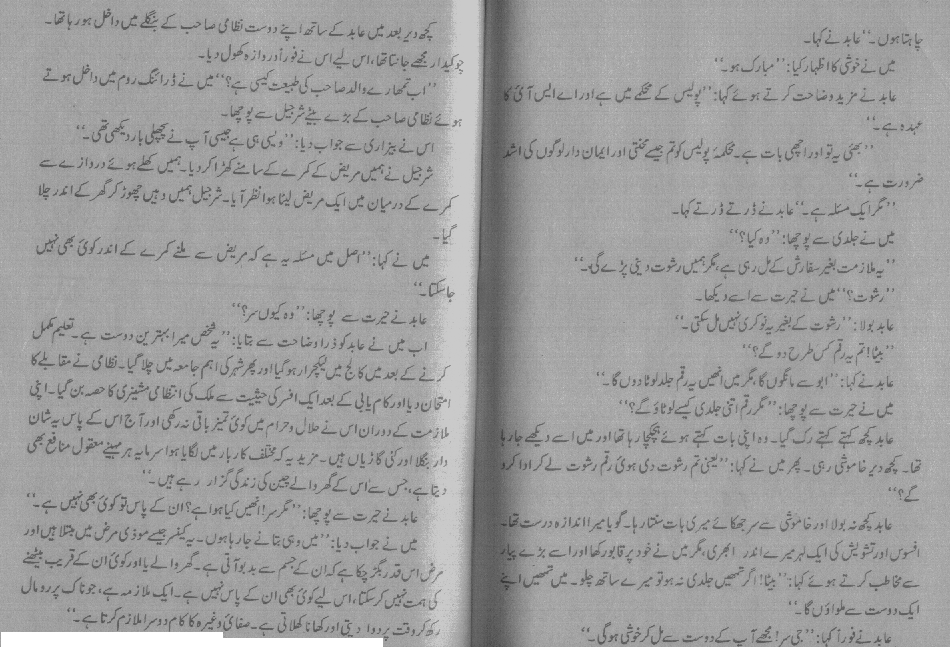 چاہتا ہوں۔‘‘ عابد نے کہا۔
میں نے خوشی کا اظہار کیا: ’’مبارک ہو۔‘‘
عابد نے مزید وضاحت کرتے ہوئے کہا: ’’پولیس کے محکمے میں ہے اور اے ایس آئی کا
عہدہ ہے۔‘‘
’’بھئی یہ تو اور اچھی بات ہے۔ محکمۂ پولیس کو تم جیسے محنتی اور ایمان دار لوگوں کی اشد
ضرورت ہے۔‘‘
’’مگر ایک مسئلہ ہے۔‘‘ عابد نے ڈرتے ڈرتے کہا۔
میں نے جلدی سے پوچھا: ’’وہ کیا؟‘‘
’’یہ ملازمت بغیر سفارش کے مل رہی ہے، مگر ہمیں رشوت دینی پڑے گی۔‘‘
’’رشوت؟‘‘ میں نے حیرت سے اسے دیکھا۔
عابد بولا: ’’رشوت کے بغیر یہ نوکری نہیں مل سکتی۔‘‘
’’بیٹا! تم یہ رقم کس طرح دو گے؟‘‘
عابد نے کہا: ’’ابو سے مانگوں گا، مگر میں انھیں یہ رقم جلد لوٹا دوں گا۔‘‘
میں نے حیرت سے پوچھا: ’’مگر رقم اتنی جلدی کیسے لوٹاؤ گے؟‘‘
عابد کچھ کہتے کہتے رک گیا۔ وہ اپنی بات کہتے ہوئے ہچکچا رہا تھا اور میں اسے دیکھے جا رہا
تھا۔ کچھ دیر خاموشی رہی۔ پھر میں نے کہا: ’’یعنی تم رشوت دی ہوئی رقم رشوت لے کر ادا کرو
گے؟‘‘
عابد کچھ نہ بولا اور خاموشی سے سر جھکائے میری بات سنتا رہا۔ گویا میرا اندازہ درست تھا۔
افسوس اور تشویش کی ایک لہر میرے اندر ابھری، مگر میں نے خود پر قابو رکھا اور اسے بڑے پیار
سے مخاطب کرتے ہوئے کہا: ’’بیٹا! اگر تمھیں جلدی نہ ہو تو میرے ساتھ چلو۔ میں تمھیں اپنے
ایک دوست سے ملواؤں گا۔‘‘
عابد نے فوراً کہا: ’’جی سر! مجھے آپ کے دوست سے مل کر خوشی ہو گی۔‘‘
کچھ دیر بعد میں عابد کے ساتھ اپنے دوست نظامی صاحب کے بنگلے میں داخل ہو رہا تھا۔
چوکیدار مجھے جانتا تھا، اس لیے اس نے فوراً دروازہ کھول دیا۔
’’اب تمھارے والد صاحب کی طبیعت کیسی ہے؟‘‘ میں نے ڈرائنگ روم میں داخل ہوتے
ہوئے نظامی صاحب کے بڑے بیٹے شرجیل سے پوچھا۔
اس نے بیزاری سے جواب دیا: ’’ویسی ہی ہے جیسی آپ نے پچھلی بار دیکھی تھی۔‘‘
شرجیل نے ہمیں مریض کے کمرے کے سامنے کھڑا کر دیا۔ ہمیں کھلے ہوئے دروازے سے
کمرے کے درمیان میں ایک مریض لیٹا ہوا نظر آیا۔ شرجیل ہمیں وہیں چھوڑ کر گھر کے اندر چلا
گیا۔
میں نے کہا: ’’اصل میں مسئلہ یہ ہے کہ مریض سے ملنے کمرے کے اندر کوئی بھی نہیں
جا سکتا۔‘‘
عابد نے حیرت سے پوچھا: ’’وہ کیوں سر؟‘‘
اب میں نے عابد کو ذرا وضاحت سے بتایا: ’’یہ شخص میرا بہترین دوست ہے۔ تعلیم مکمل
کرنے کے بعد میں کالج میں لیکچرار ہو گیا اور پھر شہر کی اہم جامعہ میں چلا گیا۔ نظامی نے مقابلے کا
امتحان دیا اور کام یابی کے بعد ایک افسر کی حیثیت سے ملک کی انتظامی مشینری کا حصہ بن گیا۔ اپنی
ملازمت کے دوران اس نے حلال و حرام میں کوئی تمیز باقی نہ رکھی اور آج اس کے پاس یہ شان
دار بنگلا اور کئی گاڑیاں ہیں۔ مزید یہ کہ مختلف کاروبار میں لگایا ہوا سرمایہ ہر مہینے معقول منافع بھی
دیتا ہے، جس سے اس کے گھر والے چین کی زندگی گزار رہے ہیں۔‘‘
عابد نے حیرت سے پوچھا: ’’مگر سر! انھیں کیا ہوا ہے؟ ان کے پاس تو کوئی بھی نہیں ہے۔‘‘
میں نے جواب دیا: ’’میں وہی بتانے جا رہا ہوں۔ یہ کینسر جیسے موذی مرض میں مبتلا ہیں اور
مرض اس قدر بگڑ چکا ہے کہ ان کے جسم سے بدبو آتی ہے۔ گھر والے یا اور کوئی ان کے قریب بیٹھنے
کی ہمت نہیں کر سکتا، اس لیے کوئی بھی ان کے پاس نہیں ہے۔ ایک ملازمہ ہے، جو ناک پر رومال
رکھ کر وقت پر دوا دیتی اور کھانا کھلاتی ہے۔ صفائی وغیرہ کا کام دوسرا ملازم کرتا ہے۔‘‘